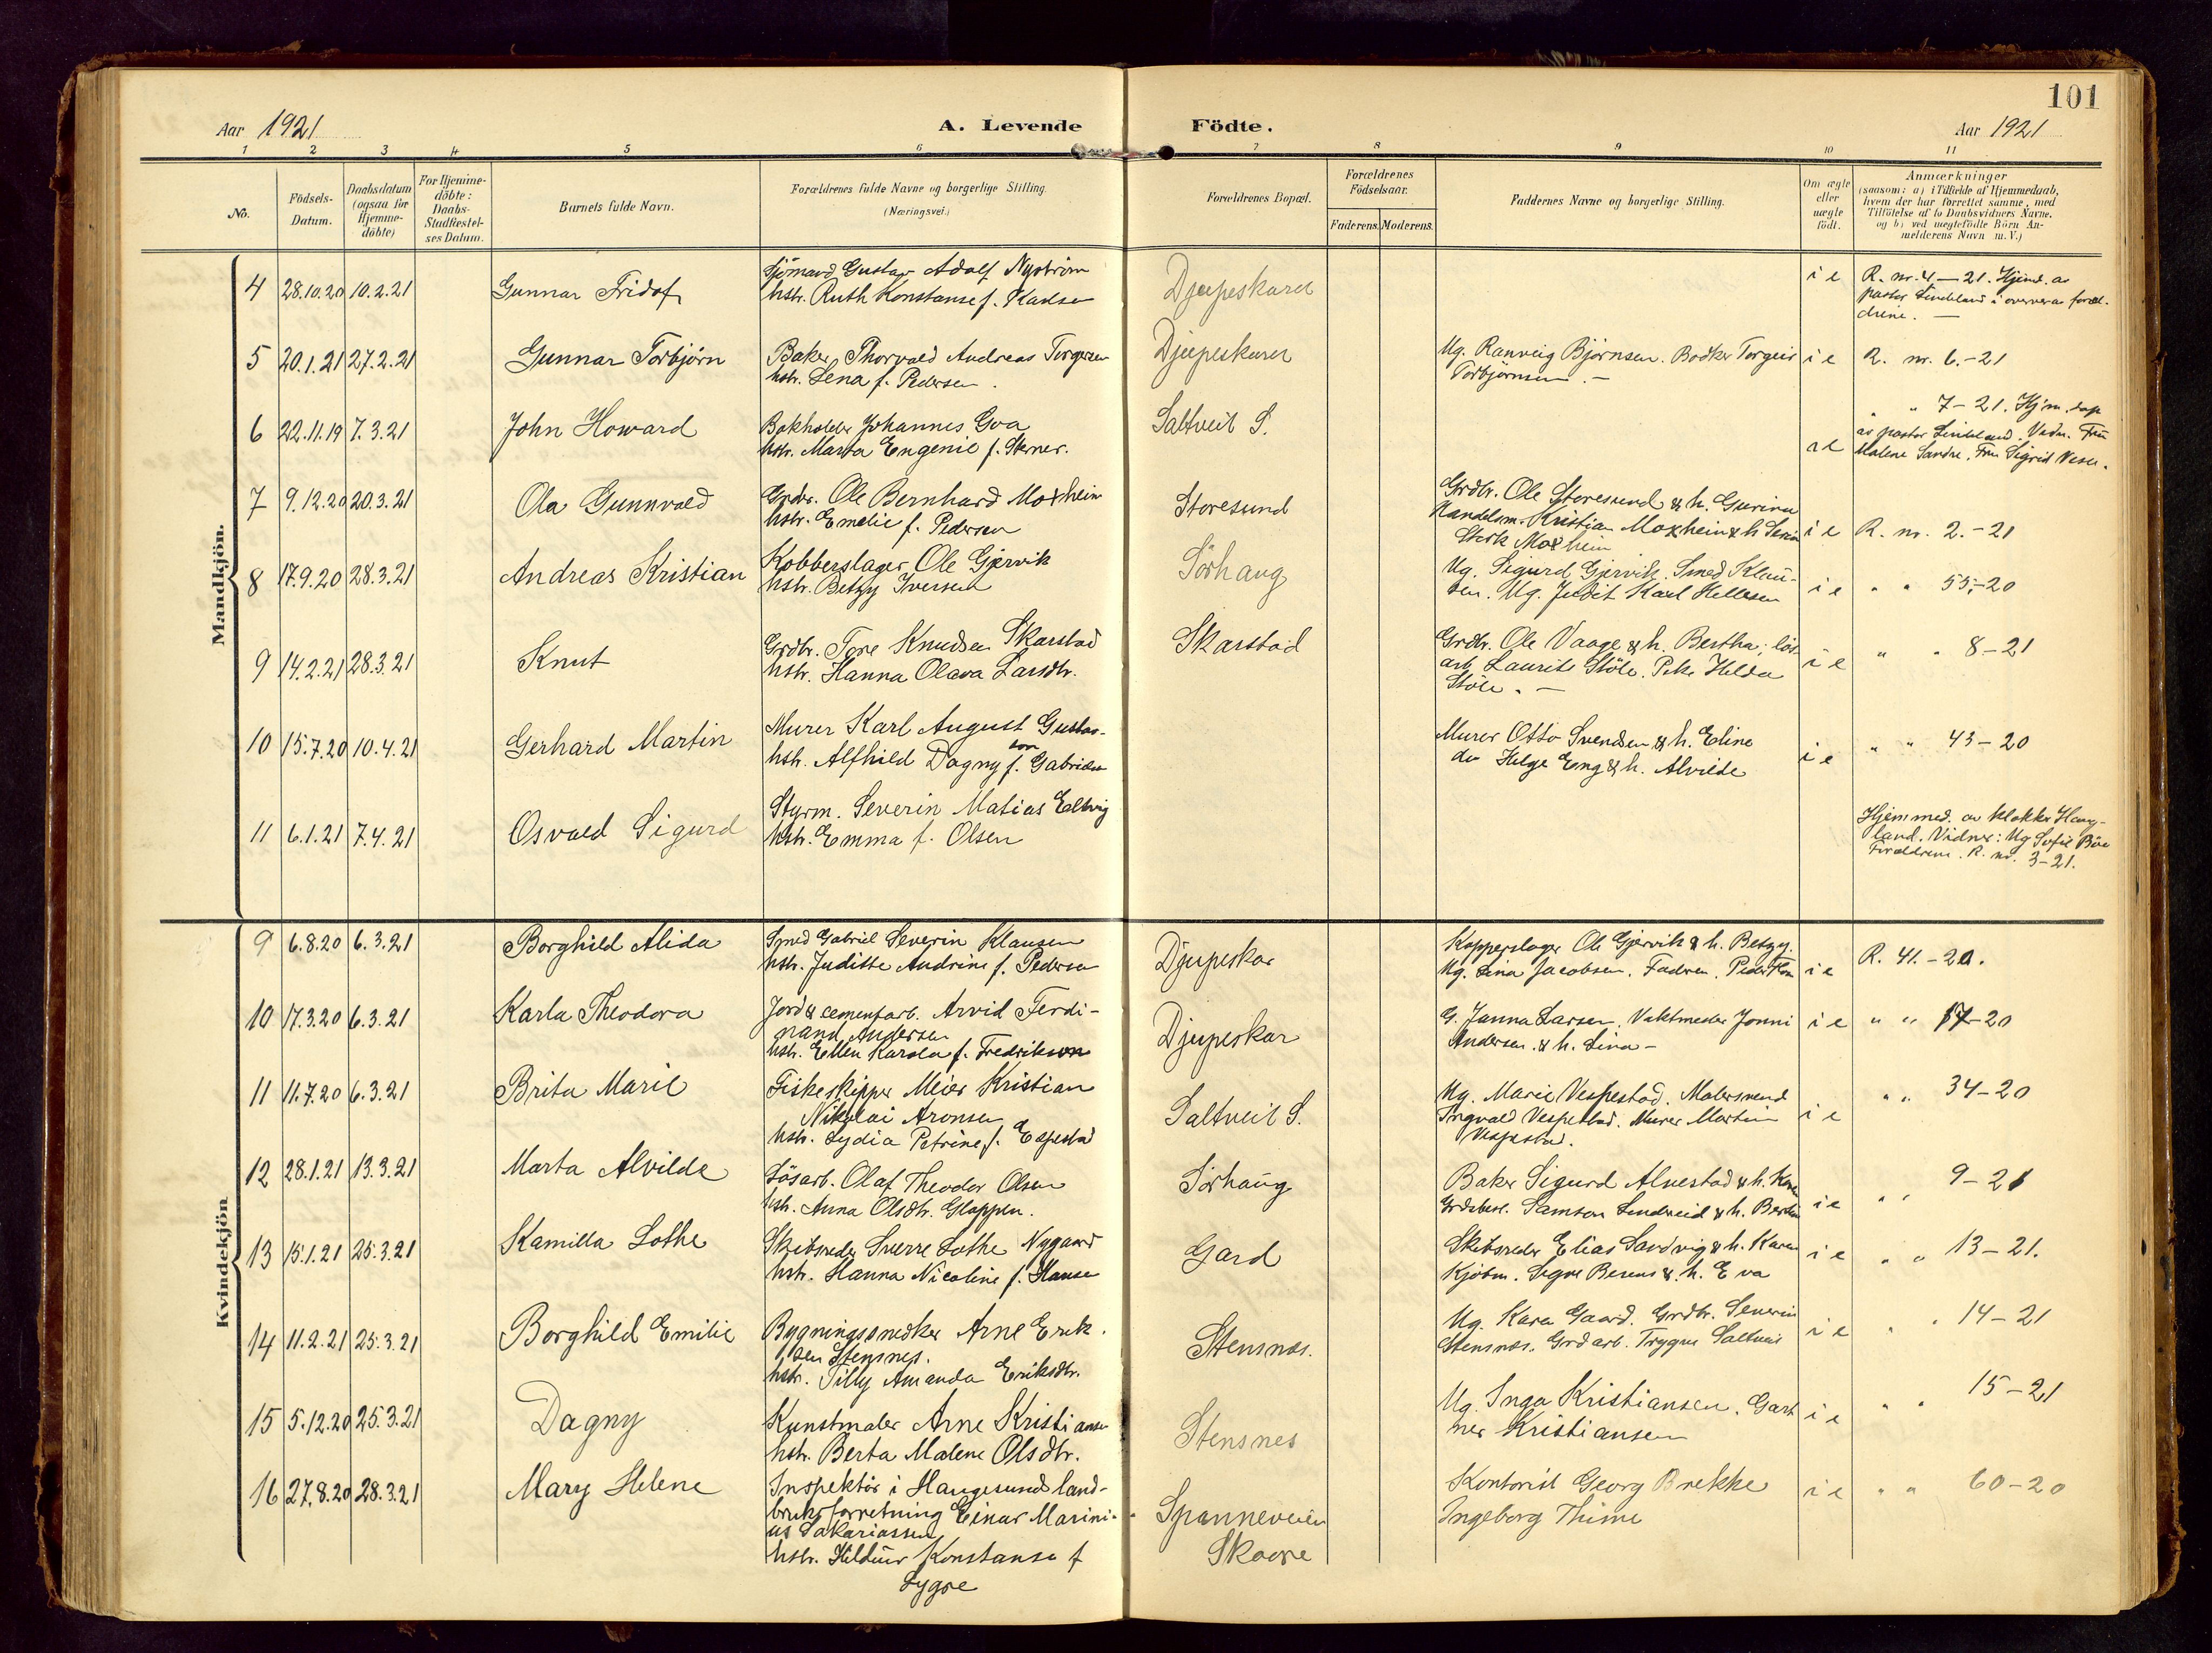 101
Aar 1921 A. Levende Födte. Aar 1921
1 2 3 4 5 6 7 8 9 10 11
No.
Födsels-
Datum.
Daabsdatum
(ogsaa for
Hjemme-
döbte)
For Hjemme-
döbte:
Daabs-
Stadfæstel-
ses Datum.
Barnets fulde Navn.
Forældrenes fulde Navne og borgerlige Stilling.
(Næringsvei.)
Forældrenes Bopæl.
Forældrenes
Födselsaar.
Faderens. Moderens.
Faddernes Navne og borgerlige Stilling.
Om ægte
eller
uægte
födt.
Anmærkninger
(saasom: a) i Tilfælde af Hjemmedaab,
hvem der har forrettet samme, med
Tilföielse af to Daabsvidners Navne.
og b) ved uægtefödte Börn An-
melderens Navn m. V.)
Mandkjön.
4 28.10.20 10.2.21 Gunnar Fridof
Sjömand Gustav Adolf Nyström
hstr. Ruth Konstanse f. Karlsen
Djupeskaret
i e
R. nr. 4 – 21. Hjmd. av
pastor Lindeland i overvær av foræl-
drene. —
5 20.1.21 27.2.21 Gunnar Torbjörn
Baker Thorvald Andreas Torgersen
hstr. Lena f. Pedersen.
Djupeskaret
Ug. Ranveig Björnsen. Bödker Torgeir
Torbjörnsen. —
i e
R. nr. 6.-21
6 22.11.19 7.3.21 John Howard
Bokholder Johannes Goa
hstr. Marta Eugenie f. Sterner.
Saltveit S.
" " 7-21. Hjm. døpt
av pastor Lindeland. Vidn. Fru
Malene Sandve. Fru Sigrid
7 9.12.20 20.3.21 Ola Gunnvald
Grdbr. Ole Bernhard Moxheim
hstr. Emelie f. Pedersen
Storesund
Grdbr. Ole Storesund & h. Gurina
Handelsm. Kristian Moxheim & h
Moxheim
i e
R. nr. 2.-21
8 17.9.20 28.3.21 Andreas Kristian
Kobberslager Ole Gjervik
hstr. Betzy Iversen
Sörhaug
Ug. Sigurd Gjervik. Smed Klau-
sen. Ug. Judit Karl Hellesen
i e
" " 55-20
9 14.2.21 28.3.21 Knut
Grdbr. Tore Knudsen Skarstad
hstr. Hanna Olava Larsdtr.
Skarstad
Grdbr. Ole Vaage & h. Bertha; lös
arb. Laurits Stöle. Pike Helda
Stöle. —
i e
" " 8-21
10 15.7.20 10.4.21 Gerhard Martin
Murer Karl August Gustav-
son
hstr. Alfhild Dagny f. Gabrielsen
Murer Otto Svendsen & h. Eline
do Helge Eng & h. Alvilde
i e
" " 43-20
11 6.1.21 7.4.21 Osvald Sigurd
Styrm. Severin Matias Eltvig
hstr. Emma f. Olsen
Hjemmed. av klokker Haug-
land. Vidner: Ug Sofie Böe
Forældrene. R. nr. 3-21.
Kvindekjön
9 6.8.20 6.3.21 Borghild Alida
Smed Gabriel Severin Klausen
hstr. Juditte Andrine f. Pedersen
Djupeskar
Kopperslager Ole Gjervik & h. Betzy.
Ug. Lina Jacobsen. Fadren. Peder
i e
R. 41.-20.
10 17.3.20 6.3.21 Karla Theodora
Jord & cementarb. Arvid Ferdi-
nand Andersen
hstr. Ellen Karola f. Fredrikson
Djupeskar
G. Janna Larsen. Vaktmester Jonni
Andersen. & h. Lina –
i e
" " 17-20
11 11.7.20 6.3.21 Brita Marie
Fiskeskipper Meier Kristian
Nikolai Aronsen
hstr. Lydia Petrine f. Espestad
Saltveit S.
Ug. Marie Vespestad. Malersvend
Ingvald Vespestad. Murer Martin
Vespestad.
i e
" " 34-20
12 28.1.21 13.3.21 Marta Alvilde
Lösarb. Olaf Theodor Olsen
hstr. Anna Olsdtr. Gloppen.
Sörhaug
Baker Sigurd Alvestad & h. Karen
Grdsbest. Samson Lindreid & h.
i e
" " 9-21
13 15.1.21 25.3.21 Kamilla Lothe
Skibsreder Sverre Lothe Nygaard
hstr. Hanna Nicoline f. Hansen
Gard
Skibsreder Elias Sandvig & h. Karen
Kjöbm. Sigve & h. Eva
i e
" " 13-21.
14 11.2.21 25.3.21 Borghild Emilie
Bygningssnedker Arne Erik-
sen Stensnes.
hstr. Tilly Amanda Eriksdtr.
Stensnæs.
Ug. Kara Gaard. Grdbr. Severin
Stensnæs. Grdarb. Trygve Saltveit
i e
" " 14-21
15 5.12.20 25.3.21 Dagny
Kunstmaler Arne Kristiansen
hstr. Berta Malene Olsdtr.
Stensnes
Ug. Inga Kristiansen. Gart
ner Kristiansen
i e
" " 15-21
16 27.8.20 28.3.21 Mary Helene
Inspektör i Haugesund land-
bruksforretning Einar Marini-
us Sakariassen
hstr. Hildur Konstanse f
Lygre
Spanneveien
Skaare
Kontorist Georg Brekke
Ingeborg Thime
i e
" " 60-20